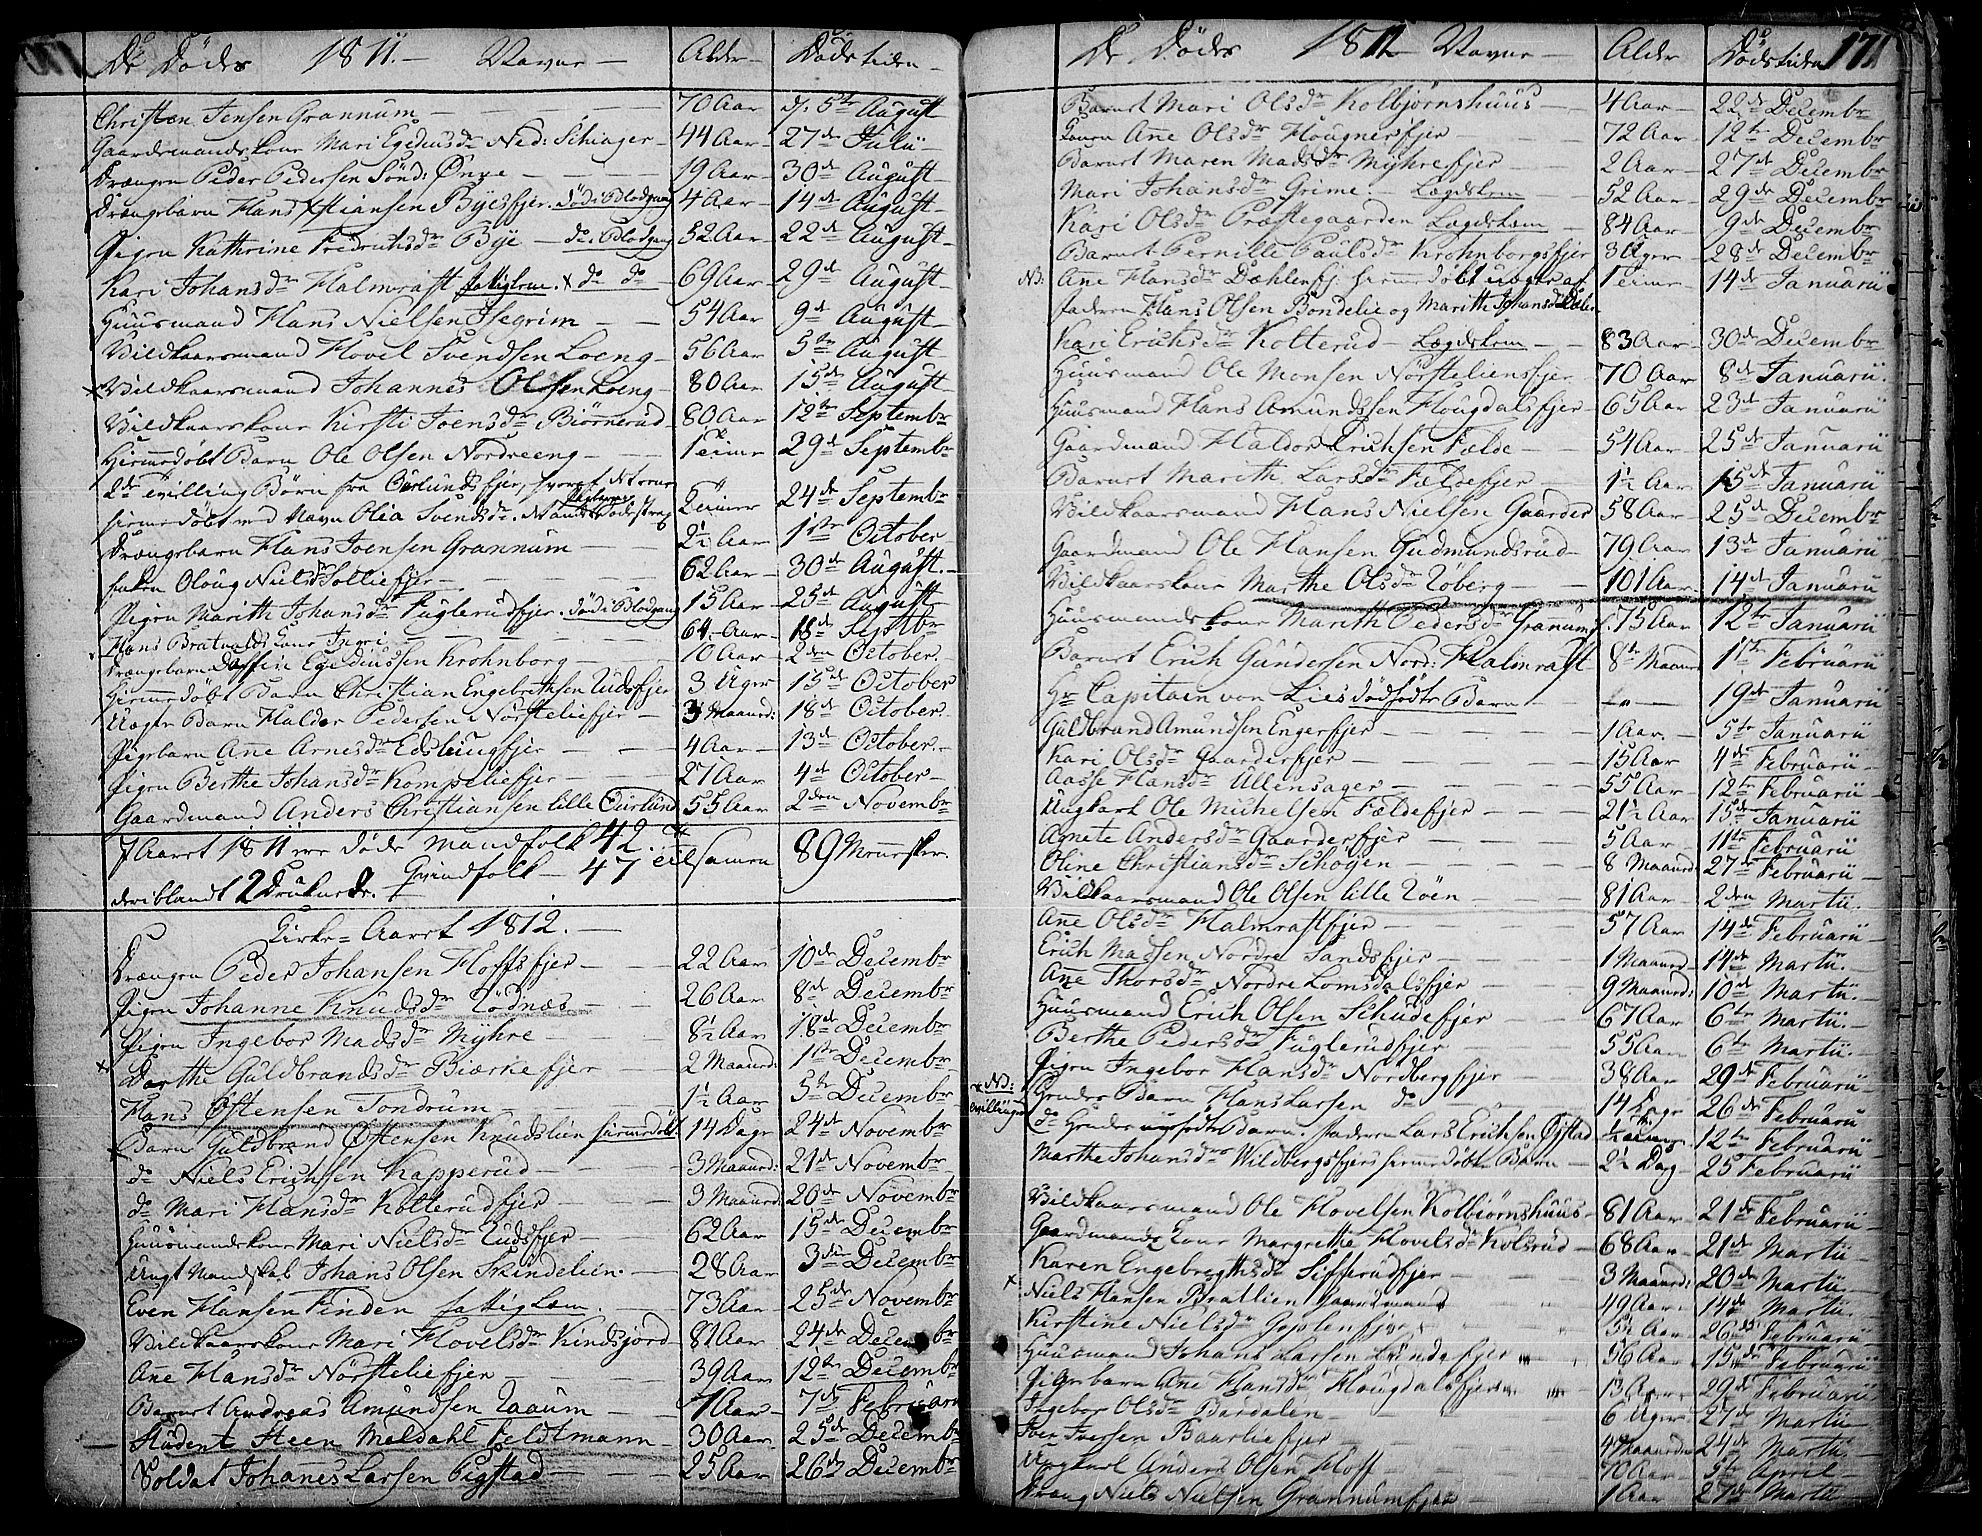 De Dødes 1811. Navne Alder Dødstiden
Christen Jensen Grannum 70 Aar d. 5te August
Gaardmandskone Mari Egediusdr Ned: Schiager 44 Aar 27de Julii
Drengen Peder Pedersen Sønd: Ønye 19 Aar 30de August
Drengebarn Hans Xstiansen Byesfjer. død i Blodgang 4 Aar 14de August
Pigen Kathrine Fredrichsdr Bye do i Blodgang 52 Aar 22de August
Kari Johansdr Halmrast fattiglem. do do 69 Aar 29de August
Huusmand Hans Nielsen Isegrim 54 Aar 9de August
Vildkaarsmand Hovel Svendsen Loeng 56 Aar 5te August
Vildkaarsmand Johannes Olsen Loeng 80 Aar 15de August
Vildkaarskone Kirsti Joensdr Biørnerud 80 Aar 12te Septembr
Hiemedøbt Barn Ole Olsen Nordreeng 1 Time 29de Septembr
2de Tvilling Børn fra Ourlundsfjer, hvoraf
hiemedøbt med Navn Olia Svendsdr. 2 Timer 24de Septembr
Drengebarn Hans Joensen Grannum 2½ Aar 1ste October
Enken Oloug Nielsdr Solliefjer 62 Aar 30de August
Pigen Marith Johansdr Fuglerudfjer. død i Blodgang 15 Aar 25de August
Hans Bratvolds Kone Ingri 64 Aar 18de Septbr
Drengebarn Daffin Egediussen Krohnborg 10 Aar 2den October
Hiemedøbt Barn Christian Engebrethsen Rudsfjer 3 Uger 15de October
Uægte Barn Halder Pedersen Nørsteliefjer 3 Maaned: 18de October
Pigebarn Ane Arnesdr Edslungfjer 4 Aar 13de October
Pigen Berthe Johansdr Kompeliefjer 27 Aar 4de October
Gaardmand Anders Christiansen lille Ourlund 55 Aar 2den Novembr
I Aaret 1811 ere døde Mandfolk 42.
Qvindfolk 47 tilsamen 89 Mennesker.
deriblandt 2 Druknede.
Kirke-Aaret 1812.
Drengen Peder Johansen Hoffsfjer 22 Aar 10de Decembr
Pigen Johanne Knudsdr Tødnæs 26 Aar 8de Decembr
Pigen Ingebor Madsdr Myhre 8½ Aar 18de Decembr
Dorthe Guldbrandsdr Biærkefjer 2 Maaned: 1ste Decembr
Hans Østensen Tondrum 1½ Aar 5te Decembr
Barn Guldbrand Østensen Knudslien hiemedøbt 14 Dage 24de Novembr
do Niels Erichsen Kapperud 3 Maaned: 21de Novembr
do Mari Hansdr Kolterudfjer 3 Maaned: 20de Novembr
Huusmandskone Mari Nielsdr Rudsfjer 62 Aar 15de Decembr
Ungt Mandskab Johans Olsen Skindelien 28 Aar 3die Decembr
Even Hansen Finden fattig Lem. 73 Aar 25de Novembr
Vildkaarskone Mari Hovelsdr Kindsjord 81 Aar 24de Decembr
Ane Hansdr Nørsteliefjer 39 Aar 12te Decembr
Barnet Andreas Amundsen Raaum 1 Aar 7de Februarii
Student Steen Meldahl Feldtmann 30 Aar 25de Decembr
Soldat Johannes Larsen Pigstad 25 Aar 26de Decembr
De Dødes 1812 Navne Alder Dødstiden 171
Barnet Mari Olsdr Kolbjørnshuus 4 Aar 22de Decembr
Konen Ane Olsdr Hougnersfjer 72 Aar 12te Decembr
Barnet Maren Madsdr Myhrefjer 2 Aar 27de Decembr
Mari Johansdr Grime Lægdslem 52 Aar 29de Decembr
Kari Olsdr Præstegaarden Lægdslem 84 Aar 9de Decembr
Barnet Pernille Paulsdr Krohnborgsfjer 3 Uger 28de Decembr
NB: Ane Hansdr Dæhlenfj. hiemedøbt uægte af 1 Time 14de Januarii
faderen Hans Olsen Bondelie og Marithe Johansdr
Kari Erichsdr Kolterud Lægdslem 83 Aar 30de Decembr
Huusmand Ole Monsen Nørsteliensfjer 70 Aar 8de Januarii
Huusmand Hans Amundssen Hougdalsfjer 65 Aar 23de Januarii
Gaardmand Haldor Erichsen Fælde 54 Aar 25de Januarii
Barnet Marith Larsdr Fældefjer 1½ Aar 15de Januarii
Vildkaarsmand Hans Nielsen Gaarder 58 Aar 25de Decembr
Gaardmand Ole Hansen Gudmundsrud 79 Aar 13de Januarii
Vildkaarskone Marthe Olsdr Røberg 101 Aar 14de Januarii
Huusmandskone Marith Pedersdr Granumsf. 75 Aar 12te Januarii
Barnet Erich Gundersen Nord: Halmrast 8te Maaned 1ste Februarii
Hr Capitain von Lies dødfødte Barn 19de Januarii
Guldbrand Amundsen Engerfjer 1 Aar 5te Januarii
Kari Olsdr Gaarderfjer 15 Aar 4de Februarii
Aasse Hansdr Ullensager 55 Aar 12te Februarii
Ungkarl Ole Michelsen Fældefjer 21½ Aar 15de Januarii
Agnete Andersdr Gaarderfjer 5 Aar 11te Februarii
Oline Christiansdr Schøyen 8 Maaned 27de Februarii
Vildkaarsmand Ole Olsen lille Røen 81 Aar 2den Martii
Ane Olsdr Halmrastfjer 57 Aar 14de Februarii
Erich Madsen Nordre Sandsfjer 1 Maaned 14de Martii
Ane Thorsdr Nordre Lomsdalsfjer 9 Maaned: 10de Martii
Huusmand Erich Olsen Schudefjer 67 Aar 6te Martii
Berthe Pedersdr Fuglerudfjer 55 Aar 6te Martii
Pigen Ingebor Hansdr Nordbergfjer 38 Aar 29de Februarii
NB: Tvillinger Hendes Barn Hans Larsen do 14 Dage 26de Februarii
do Hendes Barn. faderen Lars Erichsen Øystad 12te Februarii
Marthe Johansdr Wildbergsfjers hiemedøbte Barn 2½ Dag 25 Februarii
Vildkaarsmand Ole Hovelsen Kolbiørnshuus 81 Aar 21de Februarii
Gaardmands Kone Margrethe Hovelsdr Kolsrud 68 Aar 21de Martii
Karen Engebregthsdr Sifferudfjer 3 Maaned: 20de Martii
Niels Hansen Bratlien Gaardmand 49 Aar 14de Martii
Kirstine Nielsdr Goplenfjer 5½ Aar 26de Februarii
Huusmand Johans Larsen Lundefjer 56 Aar 15de Februarii
Pigebarn Ane Hansdr Hougdalsfjer 13 Aar 29de Februarii
Ingebor Olsdr Bardalen 6 Uger 27de Martii
Iver Iversen Baarliefjer 4 Maaneder 24de Martii
Ungkarl Anders Olsen Hoff 70 Aar 5te April
Dreng Niels Nielsen Grannumfjer 1 Aar 27de Martii